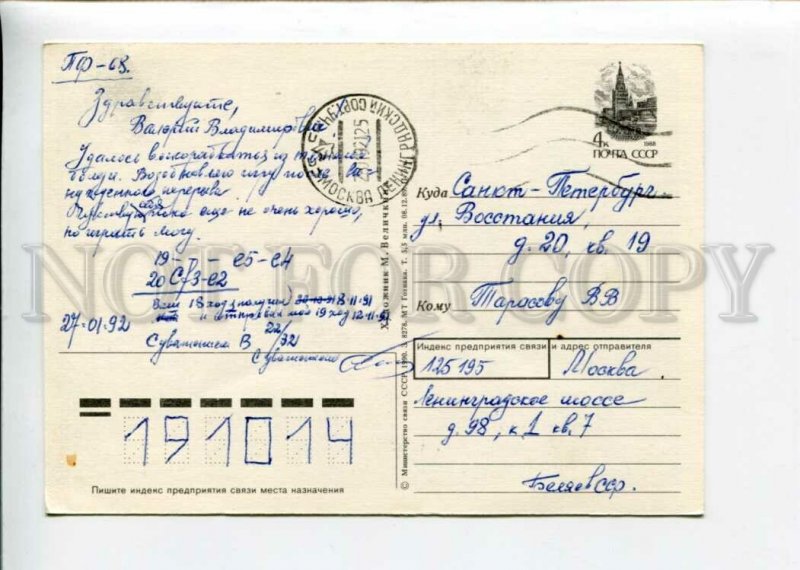 ПФ-68.
Здравствуйте,
Валерий Владимирович
Удалось выкарабкаться из
беды. Возобновляю игру после
вынужденного перерыва
Чувствую себя еще не очень хорошо,
но играть могу.
19 - " - e5-e4
20 Cf3-e2
Ваш 18 ход получил 8-11-91
и отправил мой 19 ход 12-11-91
27-01-92
С уважением В
22/32
С уважением
191014
Пишите индекс предприятия связи места назначения
МОСКВА
© Министерство связи СССР. 1990. З. 8278. МТ Гознака.
Художник М. Величкин
4к
1988
ПОЧТА СССР
Куда Санкт-Петербург
ул. Восстания,
д. 20, кв. 19
Кому Тарасову В В
Индекс предприятия связи и адрес отправителя
125195 Москва
Ленинградское шоссе
д. 98, к. 1 кв. 7
NOT FOR COPY